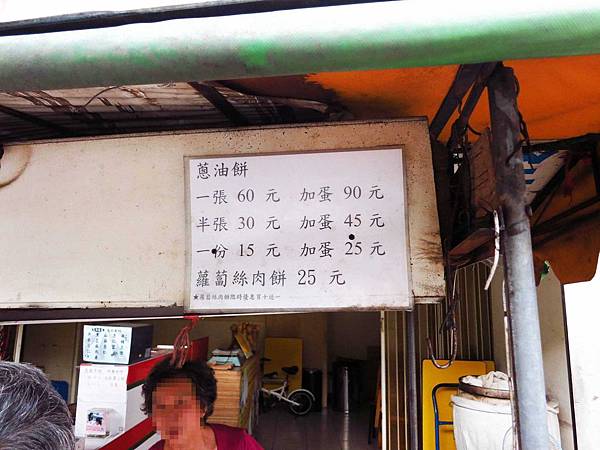 蔥油餅
一張 60 元 加蛋 90 元
半張 30 元 加蛋 45 元
一份 15 元 加蛋 25 元
蘿蔔絲肉餅 25 元